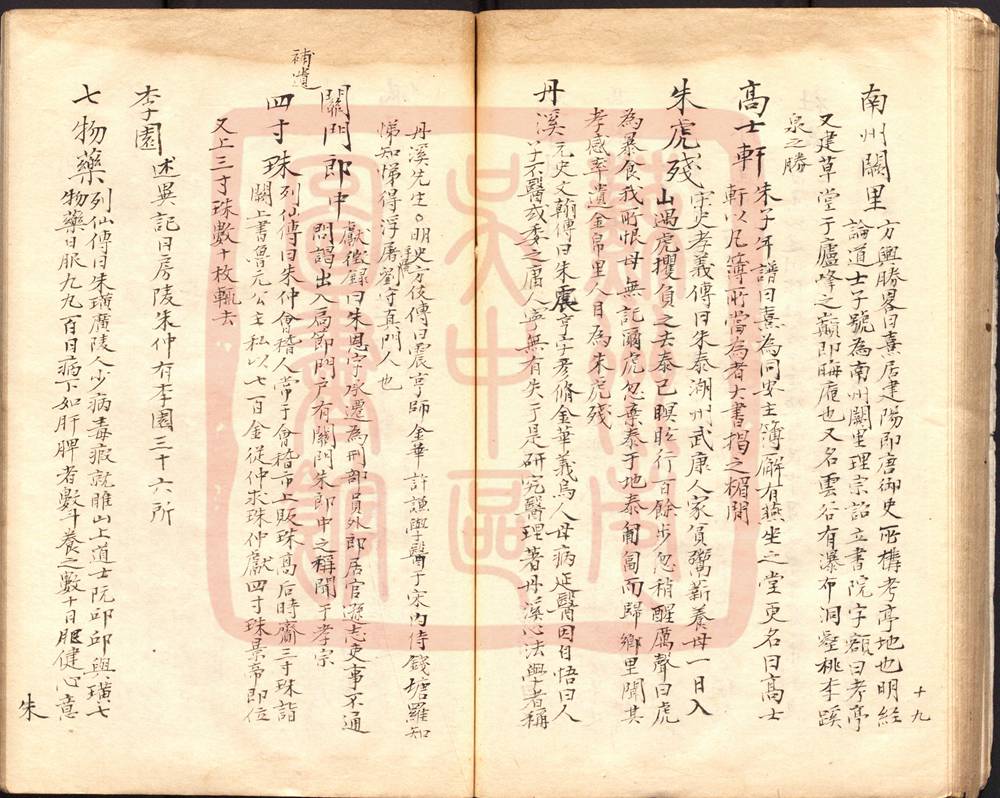 十九
南州闕里 方輿勝畧曰熹居建陽即唐御史所構考亭地也明經
論道士子號為南州闕里理宗詔立書院字額曰考亭
又建草堂于廬峰之巔即晦庵也又名雲谷有瀑布洞壑桃李蹊
泉之勝
高士軒 朱子年譜曰熹為同安主簿廨有燕坐之堂更名曰高士
軒以凡簿所當為者大書揭之楣間
朱虎殘 宋史孝義傳曰朱泰湖州武康人家貧鬻薪養母一日入
山遇虎攫負之去泰已瞑眩行百餘步忽稍醒厲聲曰虎
為暴食我所恨母無託爾虎忽棄泰于地泰匍匐而歸鄉里聞其
孝感率遺金帛里人目為朱虎殘
丹溪 元史文翰傳曰朱震亨字彦脩金華義烏人母病延醫因自悟曰人
子不醫或委之庸人寧無有失于是研究醫理著丹溪心法學者稱
丹溪先生○明史方伎傳曰震亨師金華許謙學醫于宋内侍錢塘羅知
悌知悌得浮屠劉守真門人也
關門郎中 獻徵録曰朱恩字承遷為刑部員外郎居官遜志吏事不通
問謁出入扃節門户有關門朱郎中之稱聞于孝宗
補遺
四寸珠 列仙傳曰朱仲會稽人常于會稽市上販珠高后時齎三寸珠詣
闕上書魯元公主私以七百金從仲求珠仲獻四寸珠景帝即位
又上三寸珠數十枚輒去
李園 述異記曰房陵朱仲有李園三十六所
七物藥 列仙傳曰朱璜廣陵人少病毒瘕就睢山上道士阮邱邱與璜七
物藥日服九九百日病下如肝脾者數斗養之數十日肥健心意
朱